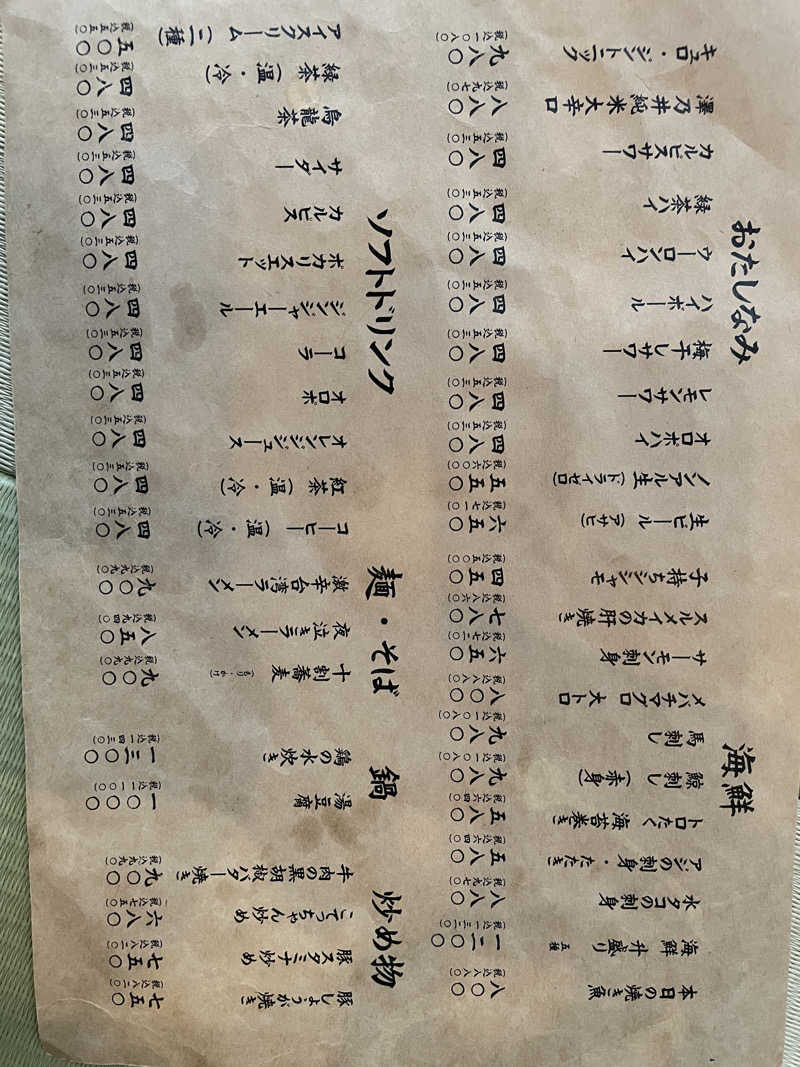 海鮮
本日の焼き魚 八〇〇 (税込八八〇)
海鮮 升盛り 五種 一二〇〇 (税込一三二〇)
水タコの刺身 八八〇 (税込九七〇)
アジの刺身・たたき 五八〇 (税込六四〇)
トロたく海苔巻き 五八〇 (税込六四〇)
鯨刺し(赤身) 九八〇 (税込一〇八〇)
馬刺し 九八〇 (税込一〇八〇)
メバチマグロ 大トロ 八〇〇 (税込八八〇)
サーモン刺身 六五〇 (税込七二〇)
スルメイカの肝焼き 七八〇 (税込八六〇)
子持ちシシャモ 四五〇 (税込五〇〇)
おたしなみ
生ビール(アサヒ) 六五〇 (税込七一〇)
ノンアル生(ドライゼロ) 五五〇 (税込六〇〇)
オロポハイ 四八〇 (税込五三〇)
レモンサワー 四八〇 (税込五三〇)
梅干しサワー 四八〇 (税込五三〇)
ハイボール 四八〇 (税込五三〇)
ウーロンハイ 四八〇 (税込五三〇)
緑茶ハイ 四八〇 (税込五三〇)
カルピスサワー 四八〇 (税込五三〇)
澤乃井純米大辛口 八八〇 (税込九七〇)
キュロ・ジントニック 九八〇 (税込一〇八〇)
炒め物
豚しょうが焼き 七五〇 (税込八二〇)
豚スタミナ炒め 七五〇 (税込八二〇)
こてっちゃん炒め 六八〇 (税込七五〇)
牛肉の黒胡椒バター焼き 九〇〇 (税込九九〇)
鍋
湯豆腐 一〇〇〇 (税込一一〇〇)
鶏の水炊き 一三〇〇 (税込一四三〇)
麺・そば
十割蕎麦 (もり・かけ) 九〇〇 (税込九九〇)
夜泣きラーメン 八五〇 (税込九四〇)
激辛台湾ラーメン 九〇〇 (税込九九〇)
ソフトドリンク
コーヒー(温・冷) 四八〇 (税込五三〇)
紅茶(温・冷) 四八〇 (税込五三〇)
オレンジジュース 四八〇 (税込五三〇)
オロポ 四八〇 (税込五三〇)
コーラ 四八〇 (税込五三〇)
ジンジャーエール 四八〇 (税込五三〇)
ポカリスエット 四八〇 (税込五三〇)
カルピス 四八〇 (税込五三〇)
サイダー 四八〇 (税込五三〇)
烏龍茶 四八〇 (税込五三〇)
緑茶(温・冷) 四八〇 (税込五三〇)
アイスクリーム(二種) 五〇〇 (税込五五〇)